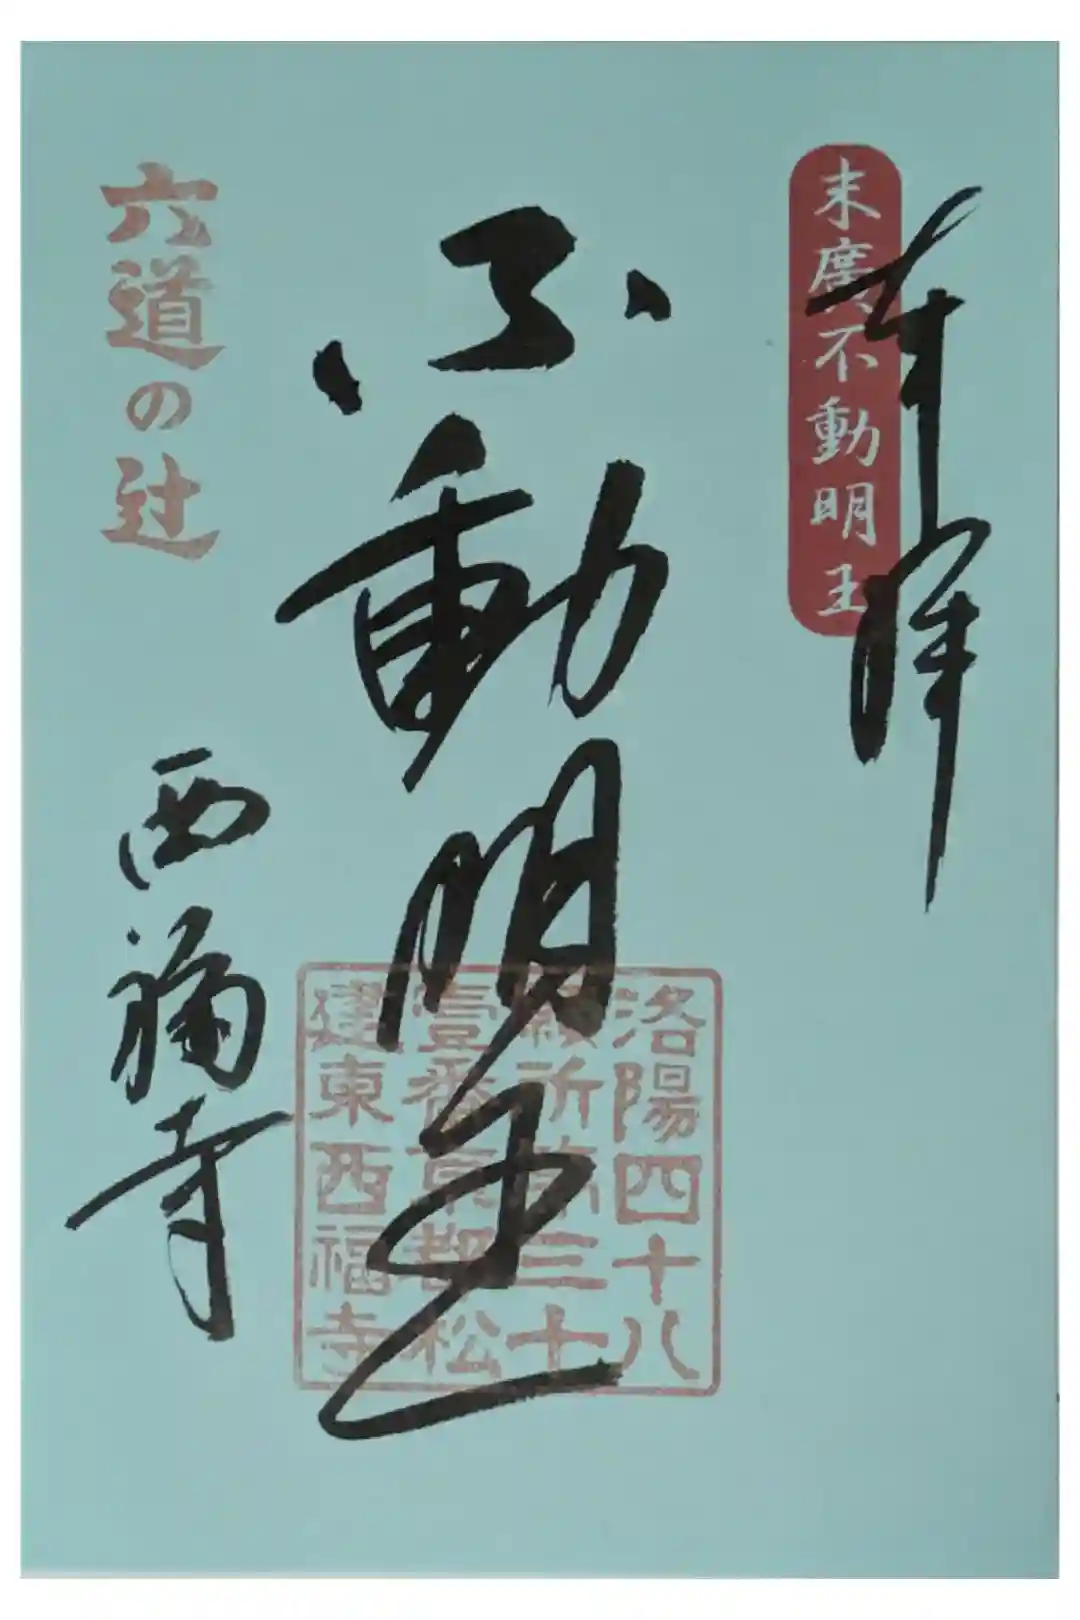 奉拝
末廣不動明王
不動明王
洛陽四十八
願所第三十
壹番京都松
建東西福寺
六道の辻
西福寺